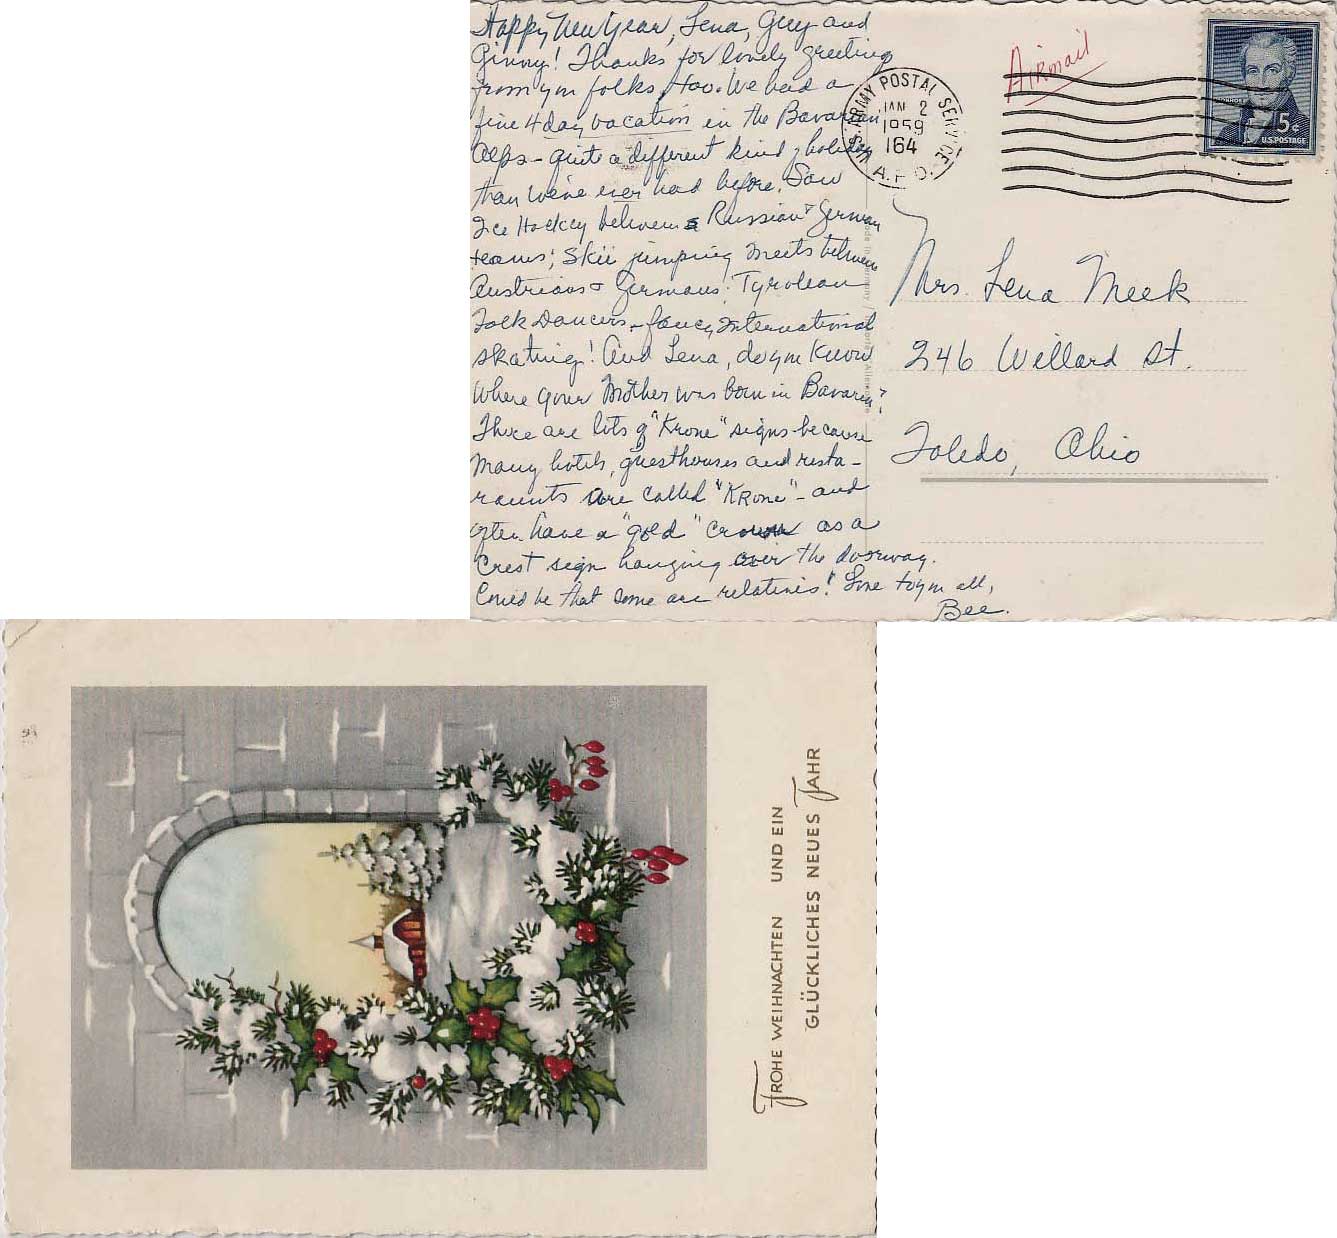 Happy New Year, Lena, Guy and
Ginny! Thanks for lovely greeting
from you folks, too. We had a
fine 4 day vacation in the Bavarian
Alps - quite a different kind of holiday
than we've ever had before. Saw
Ice Hockey between Russian & German
teams; Skii jumping meets between
Austrians & Germans; Tyrolean
Folk Dancers, fancy international
skating! And Lena, do you know
where your Mother was born in Bavaria?
There are lots of "Krone" signs because
many hotels, guesthouses and resta-
raunts are called "Krone" - and
often have a "gold" crown as a
crest sign hanging over the doorway.
Could be that some are relatives! Love to you all,
Bee.
Airmail
U.S. ARMY POSTAL SERVICE
JAN 2
1959
164
A.P.O.
5¢
U.S. POSTAGE
Made in Germany
Mrs. Lena Meek
246 Willard St.
Toledo, Ohio
FROHE WEIHNACHTEN UND EIN
GLÜCKLICHES NEUES JAHR